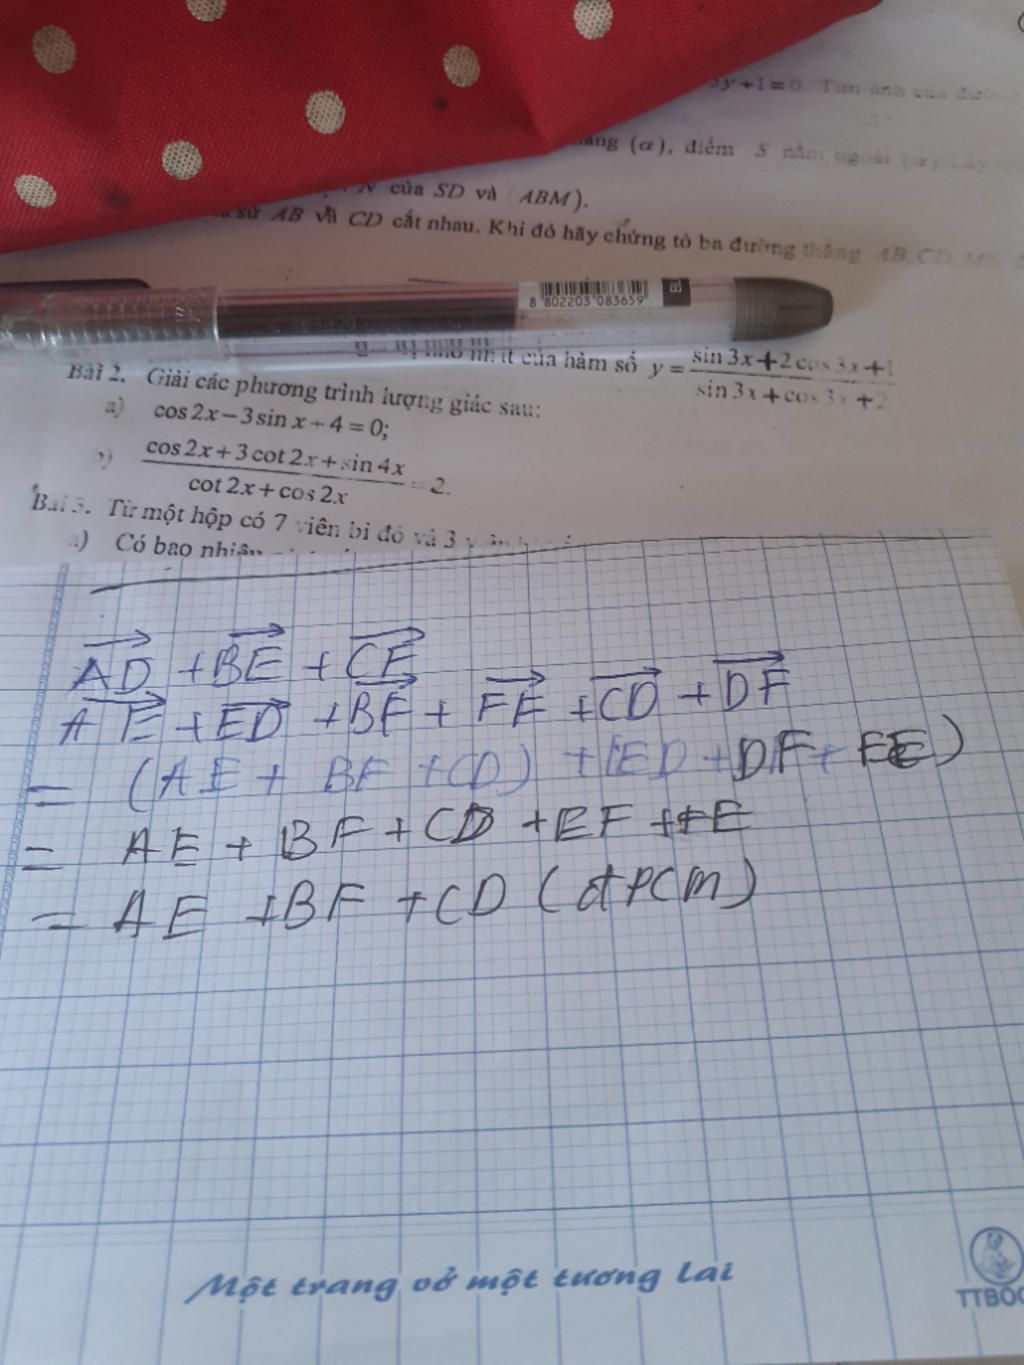 3y+1=0. Tìm ảnh của đường
(α), điểm S nằm ngoài (α). Lấy
N của SD và (ABM).
sử AB và CD cắt nhau. Khi đó hãy chứng tỏ ba đường thẳng AB, CD, MN
8 802203 083659
của hàm số y = (sin 3x + 2 cos 3x + 1)/(sin 3x + cos 3x + 2)
Bài 2. Giải các phương trình lượng giác sau:
a) cos 2x - 3 sin x - 4 = 0;
b) (cos 2x + 3 cot 2x + sin 4x)/(cot 2x + cos 2x) = 2.
Bài 3. Từ một hộp có 7 viên bi đỏ và 3
a) Có bao nhiêu
AD + BE + CF
AE + ED + BF + FE + CD + DF
= (AE + BF + CD) + (ED + DF + FE)
= AE + BF + CD + EF + FE
= AE + BF + CD (đpcm)
Một trang vở một tương lai